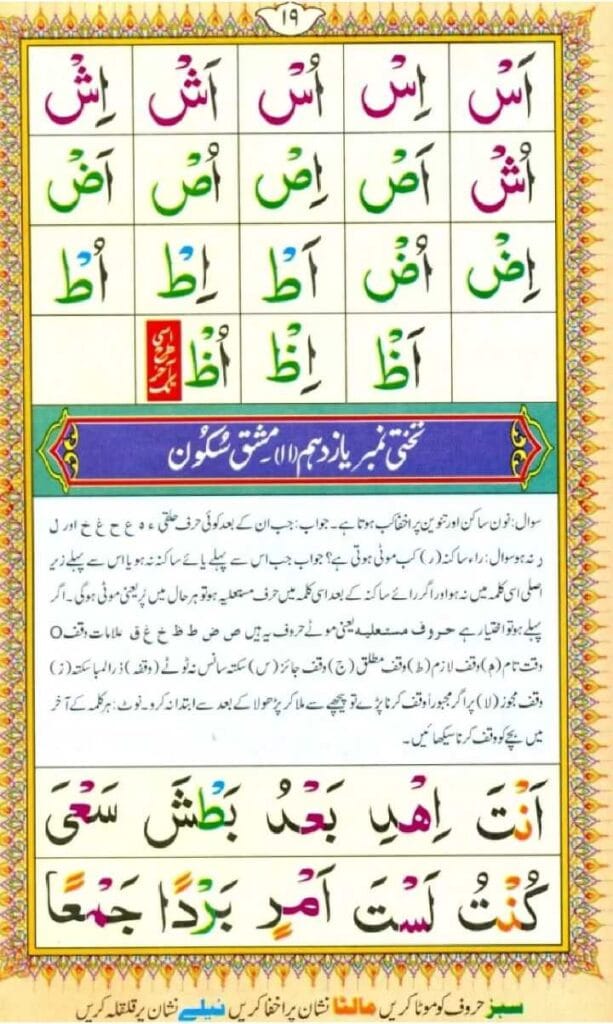 ١٩
اَسْ اِسْ اُسْ اَشْ اِشْ
اُشْ اَصْ اِصْ اُصْ اَضْ
اِضْ اُضْ اَطْ اِطْ اُطْ
اَظْ اِظْ اُظْ اسی طرح آخر تک
تختی نمبر یازدہم (۱۱) مشق سُکُون
سوال: نون ساکن اور تنوین پر اخفا کب ہوتا ہے۔ جواب: جب ان کے بعد کوئی حرف حلقی ء ہ ع ح غ خ اور ل
ر نہ ہو سوال: راء ساکنہ (ر) کب موٹی ہوتی ہے؟ جواب جب اس سے پہلے یائے ساکنہ نہ ہو یا اس سے پہلے زیر
اصلی اسی کلمہ میں نہ ہو اور اگر رائے ساکنہ کے بعد اسی کلمہ میں حرف مستعلیہ ہو تو ہر حال میں پُر یعنی موٹی ہوگی۔ اگر
پہلے ہو تو اختیار ہے حروف مستعلیہ یعنی موٹے حروف یہ ہیں ص ض ط ظ خ غ ق علامات وقف O
وقت تام (م) وقف لازم (ط) وقف مطلق (ج) وقف جائز (س) سکتہ سانس نہ ٹوٹے (وقفہ) ذرا لمبا سکتہ (ز)
وقف مجوز (لا) پر اگر مجبوراً وقف کرنا پڑے تو پیچھے سے ملا کر پڑھو لا کے بعد سے ابتدا نہ کرو۔ نوٹ: ہر کلمہ کے آخر
میں بچے کو وقف کرنا سیکھائیں۔
اَنْتَ اِهْدِ بَعْدُ بَطْشَ سَعْىَ
كُنْتُ لَسْتَ اَمْرٍ بَرْدًا جَمْعًا
سبز حروف کو موٹا کریں مالٹا نشان پر اخفا کریں نیلے نشان پر قلقلہ کریں